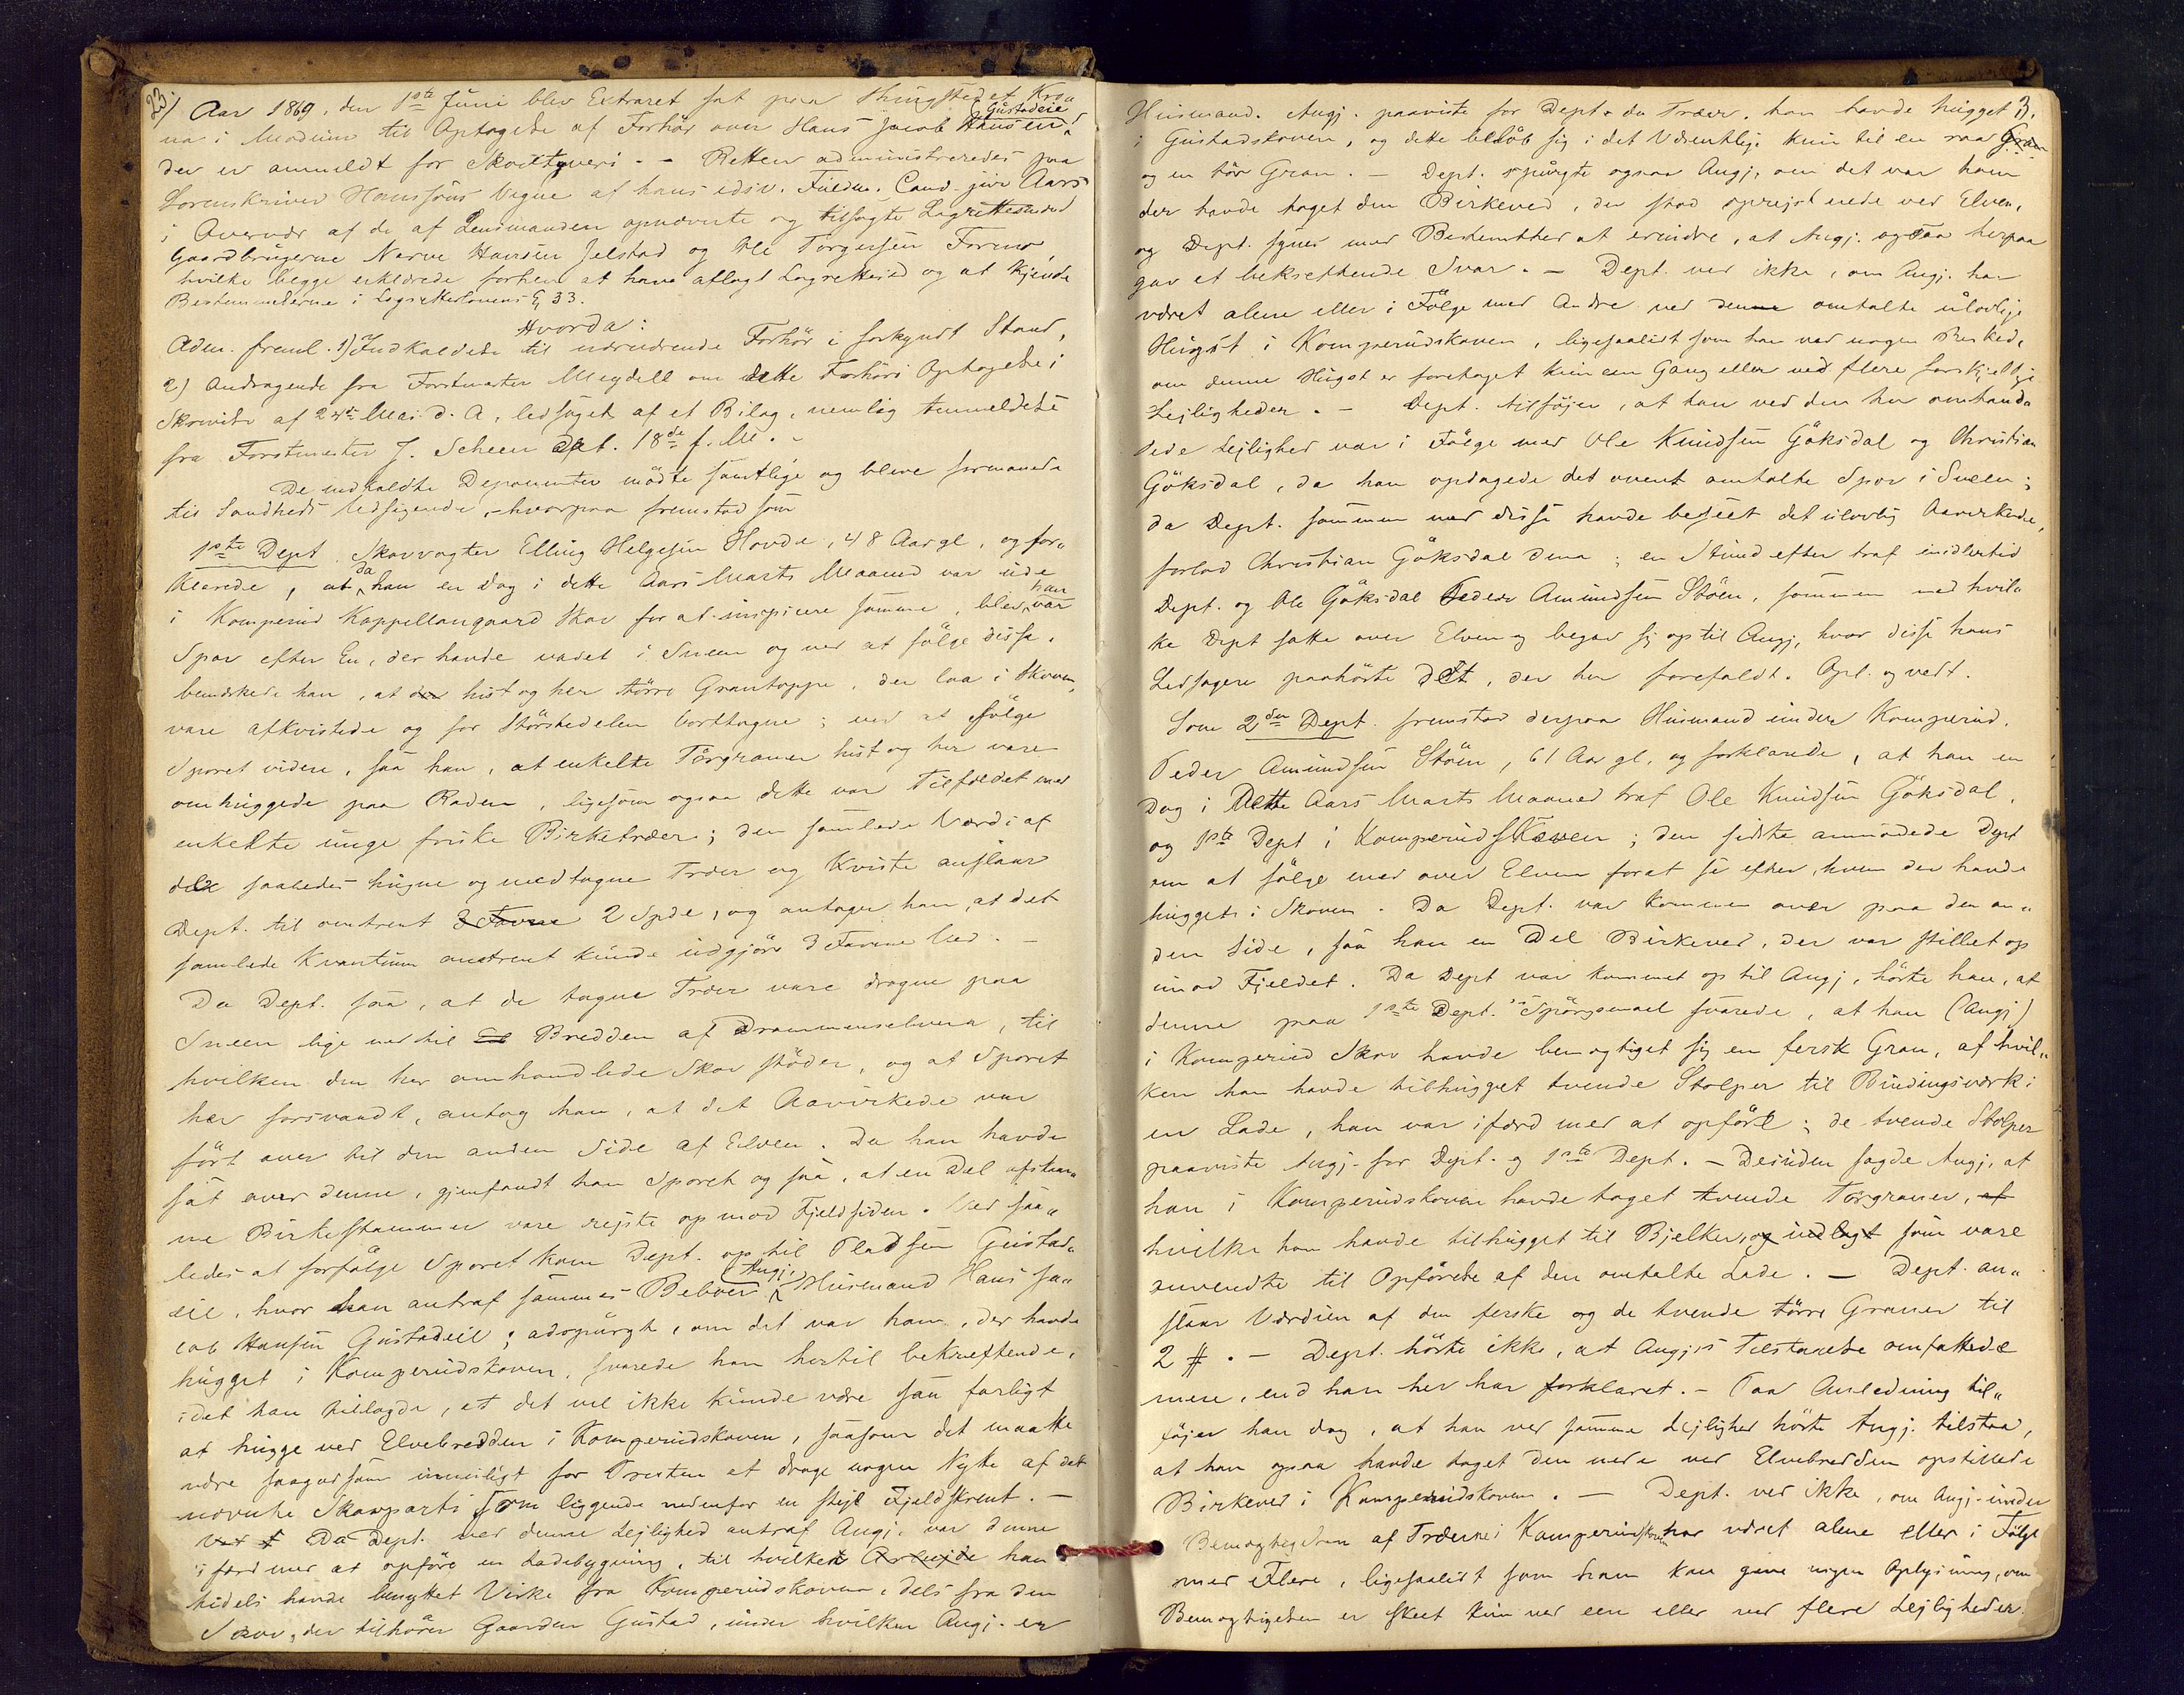 23.
2) Aar 1869, den 1ste Juni blev Extraret sat paa Thingstedet Kro„
na i Modum til Optagelse af Forhør over Hans Jacob Hansen Gustadeie
der er anmeldt for Skovtyveri. – Retten administreredes paa
Sorenskriver Hanssons Vegne af hans edsv. Fuldm. Cand. jur. Aars
i Overvær af de af Lensmanden opnævnte og tilsagte Lagrettesmænd
Gaardbrugerne Narve Hansen Jelstad og Ole Torgersen Formo
hvilke begge erklærede forhen at have aflagt Lagrettesed og at kjende
Bestemmelserne i Lagrettelovens § 33.
Hvorda:
Adm. freml. 1) Indkaldelse til nærværende Forhør i forkyndt Stand,
2) Andragende fra Forstmester Meydell om dette Forhørs Optagelse i
Skrivelse af 24de Mai d. A, ledsaget af et Bilag, nemlig Anmeldelse
fra Forstmester J. Scheen dat. 18de f. M. –
De indkaldte Deponenter mødte samtlige og bleve formanede
til Sandheds Udsigende, – hvorpaa fremstod som
1ste Dept. Skovvogter Elling Helgesen Hovde, 48 Aar gl, og for„
klarede, at da han en Dag i dette Aars Marts Maaned var ude
i Komperud Kappellangaard Skov for at inspicere samme, blev han var
Spor efter En, der havde vadet i Sneen og ved at følge disse,
bemærkede han, at der hist og her tørre Grantoppe, der laa i Skoven,
vare afkvistede og for Størstedelen borttagne; ved at følge
Sporet videre, saa han, at enkelte Tørgraner hist og her vare
omhuggede paa Roden, ligesom ogsaa dette var Tilfældet med
enkelte unge friske Birketræer; den samlede Værdi af
de saaledes hugne og medtagne Træer og Kviste anslaar
Dept. til omtrent 3 Favne 2 Spde, og antager han, at det
samlede Kvantum omtrent kunde udgjøre 3 Favne Ved. –
Da Dept. saa, at de tagne Træer vare dragne paa
Sneen lige ned til El Bredden af Drammenselven, til
hvilken den her omhandlede Skov støder, og at Sporet
her forsvandt, antog han, at det Aavirkede var
ført over til den anden Side af Elven. Da han havde
sat over denne, gjenfandt han Sporet og saa, at en Del afskaar„
ne Birkestammer vare rejste op mod Fjeldsiden. Ved saa„
ledes at forfølge Sporet kom Dept. op til Pladsen Gustad„
eie, hvor han antraf sammes Beboer Angj, Husmand Hans Ja„
cob Hansen Gustadeie; adspurgt, om det var ham, der havde
hugget i Komperudskoven, svarede han hertil bekræftende,
idet han tillagde, at det vel ikke kunde være saa farligt
at hugge ved Elvebredden i Komperudskoven, saasom det maatte
være saagodtsom umuligt for Presten at drage nogen Nytte af det
nævnte Skovparti som liggende nedenfor en steil Fjeldskrent. –
Ved f Da Dept. ved denne Lejlighed antraf Angj, var denne
ifærd med at opføre en Ladebygning, til hvilket Arbejde han
tildels havde benyttet Virke fra Komperudskoven, dels fra den
Skov, der tilhører Gaarden Gustad, under hvilken Angj. er
3.
Husmand. Angj. paaviste for Dept. de Træer, han havde hugget
i Gustadskoven, og dette beløb sig i det Væsentlige kun til en raa Gran
og en tør Gran. – Dept. spurgte ogsaa Angj, om det var ham
der havde taget den Birkeved, der stod oprejst nede ved Elven,
og Dept. synes med Bestemthed at erindre, at Angj. ogsaa herpaa
gav et bekræftende Svar. – Dept. ved ikke, om Angj. har
været alene eller i Følge med Andre ved denne omtalte ulovlige
Hugst i Komperudskoven, ligesaalidt som han ved nogen Besked,
om denne Hugst er foretaget kun een Gang eller ved flere forskjellige
Lejligheder. – Dept. tilføjer, at han ved den her omhand„
lede Lejlighed var i Følge med Ole Knudsen Gøksdal og Christian
Gøksdal, da han opdagede det ovent omtalte Spor i Sneen;
da Dept. sammen med disse havde beseet det ulovlig Aavirkede,
forlod Christian Gøksdal dem; en Stund efter traf imidlertid
Dept. og Ole Gøksdal Peder Amundsen Støen, sammen med hvil„
ke Dept satte over Elven og begav sig op til Angj, hvor disse hans
Ledsagere paahørte det, der her forefaldt. Opl. og vedt.
Som 2den Dept. fremstod derpaa Husmand under Komperud,
Peder Amundsen Støen, 61 Aar gl, og forklarede, at han en
Dag i dette Aars Marts Maaned traf Ole Knudsen Gøksdal,
og 1ste Dept i Komperudskoven; den sidste anmodede Dept
om at følge med over Elven forat se efter, hvem der havde
hugget i Skoven. Da Dept. var kommen over paa den an„
den Side, saa han en Del Birkeved, der var stillet op
imod Fjeldet. Da Dept var kommet op til Angj, hørte han, at
denne paa 1ste Dept.'s Spørgsmaal svarede, at han (Angj)
i Komperud Skov havde bemægtiget sig en fersk Gran, af hvil„
ken han havde tilhugget tvende Stolper til Bindingsværk i
en Lade, han var ifærd med at opføre; de tvende Stolper
paaviste Angj. for Dept. og 1ste Dept. – Desuden sagde Angj, at
han i Komperudskoven havde taget tvende Tørgraner, af
hvilke han havde tilhugget til Bjelker, og indlagt som vare
anvendte til Opførelse af den omtalte Lade. – Dept. an„
slaar Værdien af den ferske og de tvende tørre Graner til
2 #. – Dept. hørte ikke, at Angj.s Tilstaaelse omfattede
mere, end han her har forklaret. – Paa Anledning til„
føjer han dog, at han ved samme Lejlighed hørte Angj. tilstaa,
at han ogsaa havde taget den nede ved Elvebredden opstillede
Birkeved i Komperudskoven. – Dept. ved ikke, om Angj. under
Bemægtigelsen af Træerne i Komperudskoven har været alene eller i Følge
med Flere, ligesaalidt som han kan give nogen Oplysning, om
Bemægtigelsen er skeet kun ved een eller ved flere Lejligheder.